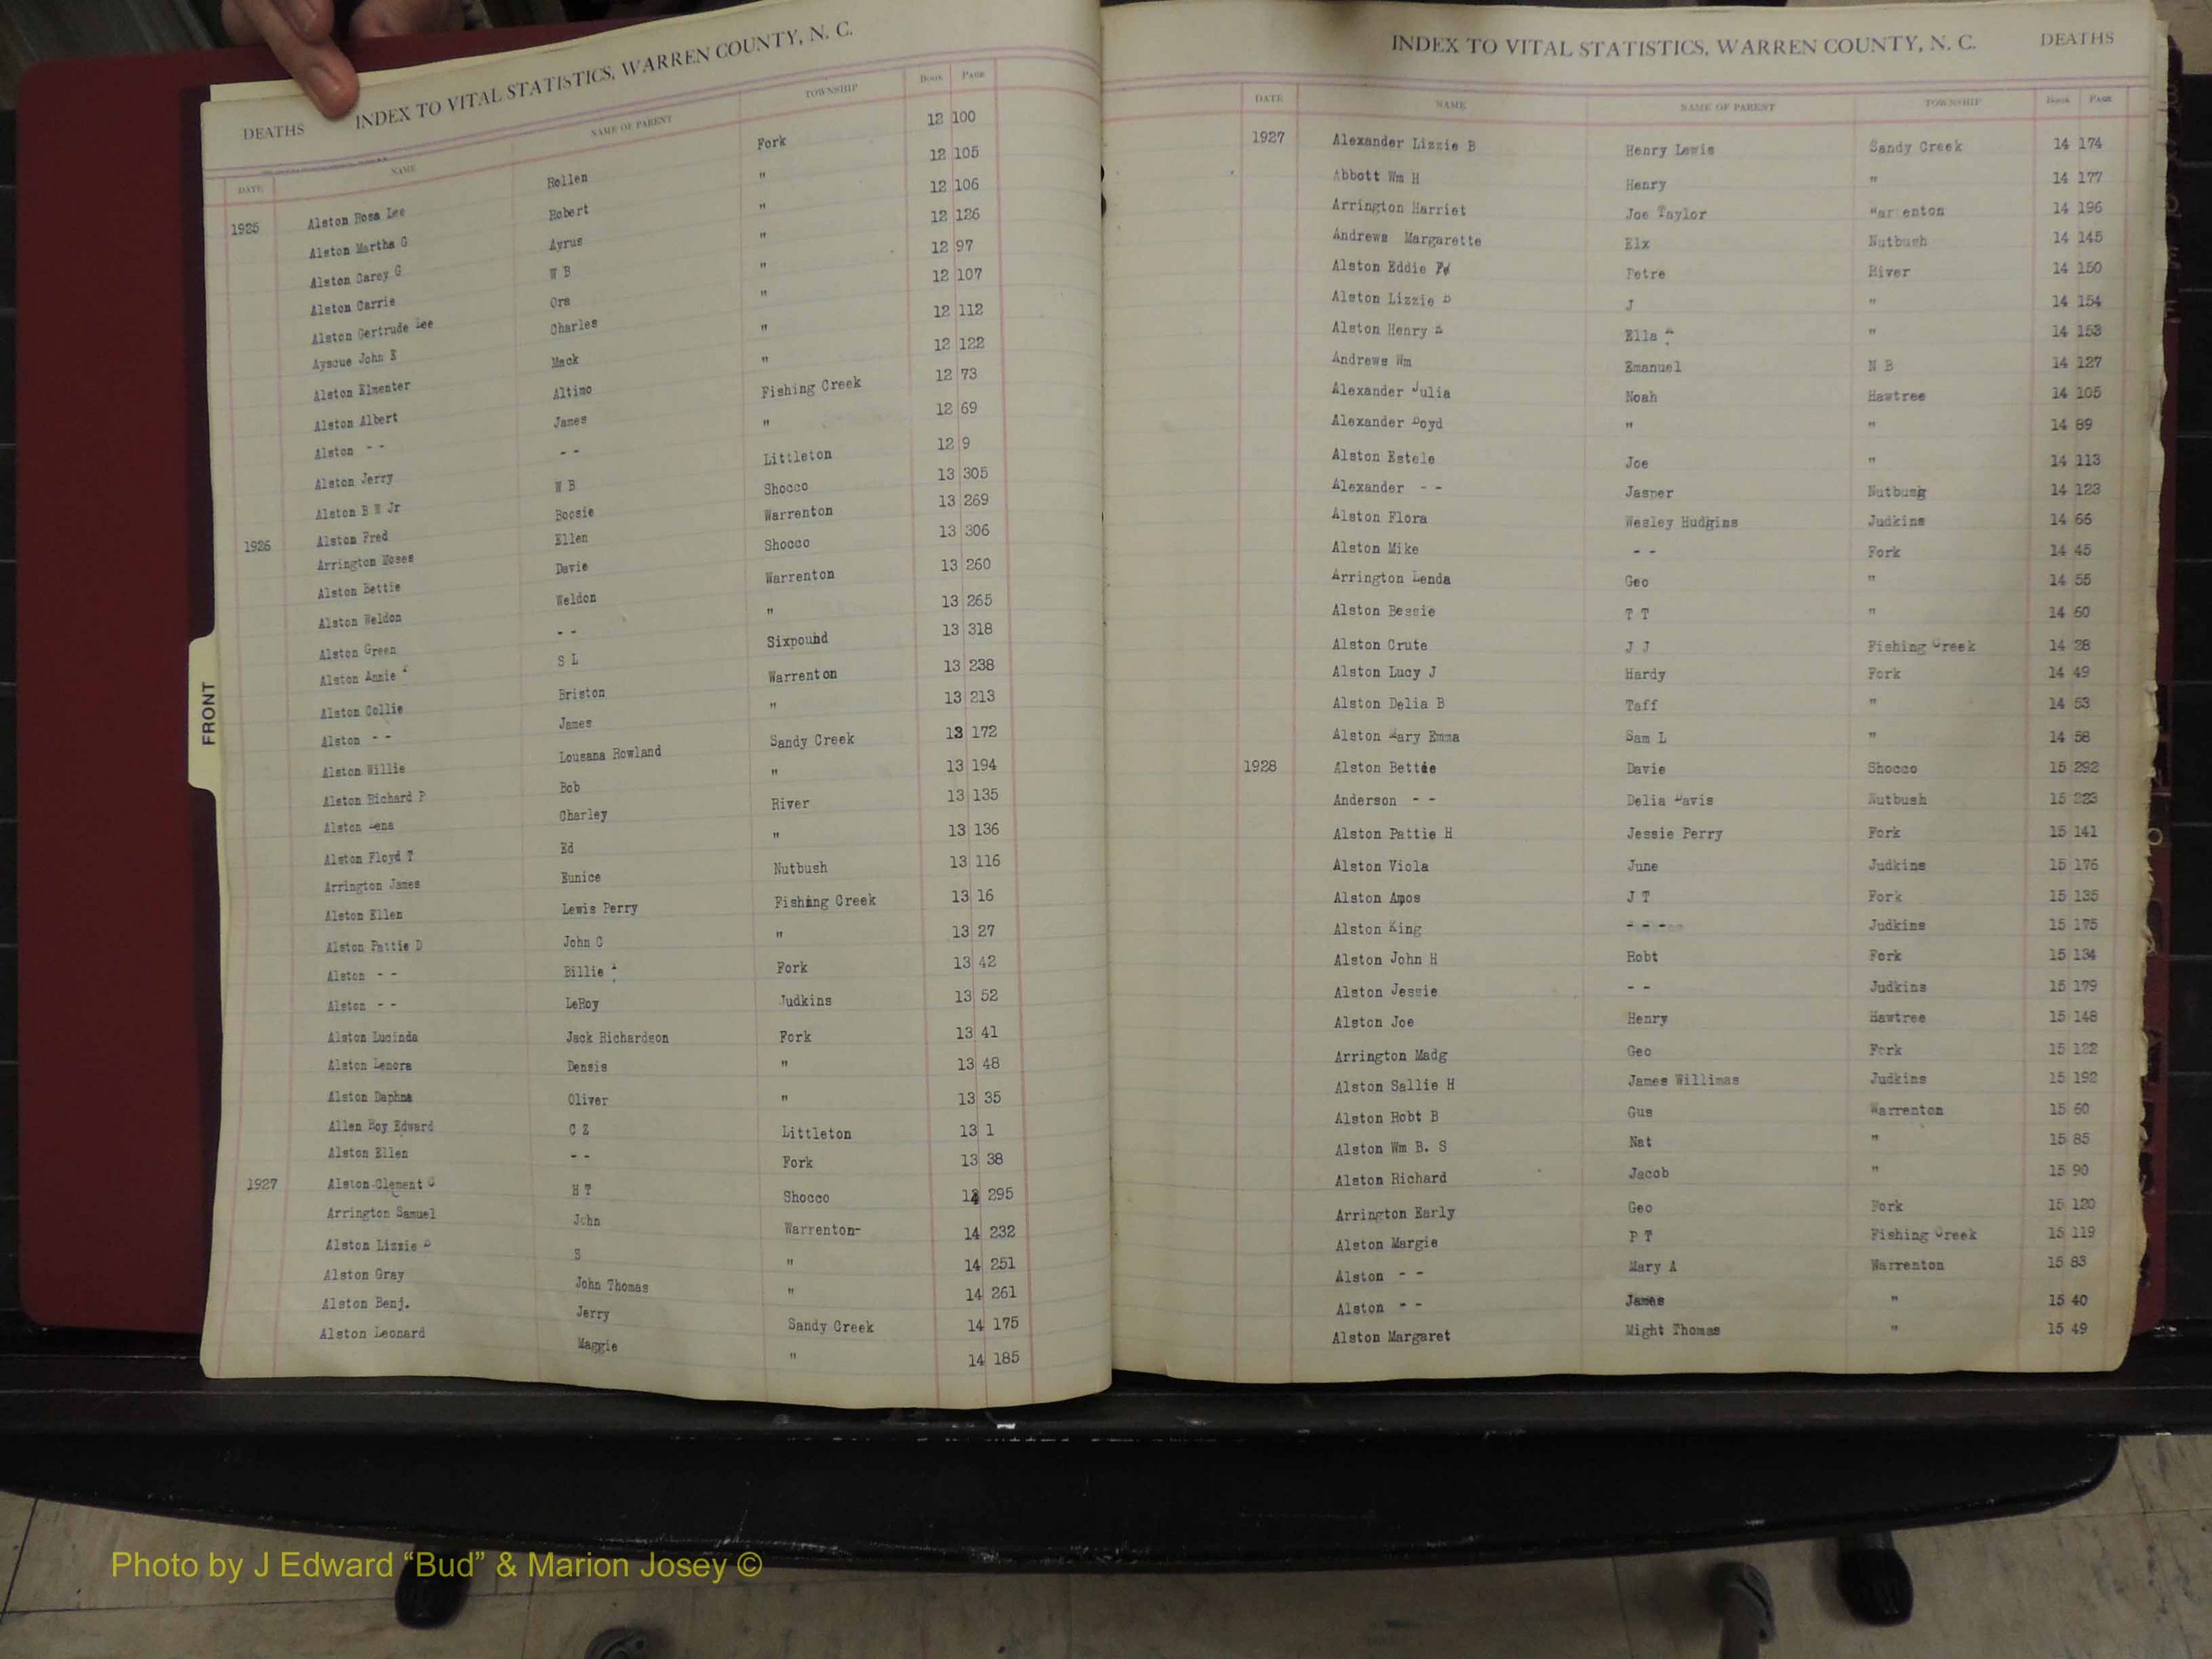 INDEX TO VITAL STATISTICS, WARREN COUNTY, N. C.
DEATHS
DATE NAME NAME OF PARENT TOWNSHIP BOOK PAGE
1925 Alston Rosa Lee Rollen Fork 12 100
Alston Martha G Robert " 12 105
Alston Carey G Ayrus " 12 106
Alston Carrie W B " 12 126
Alston Gertrude Lee Ora " 12 97
Ayscue John E Charles " 12 107
Alston Elmenter Mack " 12 112
Alston Albert Altimo " 12 122
Alston - - James Fishing Creek 12 73
Alston Jerry - - " 12 69
Alston B W Jr W B Littleton 12 9
1926 Alston Fred Boosie Shocco 13 305
Arrington Moses Ellen Warrenton 13 269
Alston Bettie Davie Shocco 13 306
Alston Weldon Weldon Warrenton 13 260
Alston Green - - " 13 265
Alston Annie S L Sixpound 13 318
Alston Collie Briston Warrenton 13 238
Alston - - James " 13 213
Alston Willie Lousana Rowland Sandy Creek 13 172
Alston Richard P Bob " 13 194
Alston Lena Charley River 13 135
Alston Floyd T Ed " 13 136
Arrington James Eunice Nutbush 13 116
Alston Ellen Lewis Perry Fishing Creek 13 16
Alston Pattie D John C " 13 27
Alston - - Billie A Fork 13 42
Alston - - LeRoy Judkins 13 52
Alston Lucinda Jack Richardson Fork 13 41
Alston Lenora Densis " 13 48
Alston Daphna Oliver " 13 35
Allen Roy Edward C Z Littleton 13 1
Alston Ellen - - Fork 13 38
1927 Alston Clement H T Shocco 14 295
Arrington Samuel John Warrenton- 14 232
Alston Lizzie B S " 14 251
Alston Gray John Thomas " 14 261
Alston Benj. Jerry Sandy Creek 14 175
Alston Leonard Maggie " 14 185
FRONT
INDEX TO VITAL STATISTICS, WARREN COUNTY, N. C. DEATHS
DATE NAME NAME OF PARENT TOWNSHIP BOOK PAGE
1927 Alexander Lizzie B Henry Lewis Sandy Creek 14 174
Abbott Wm H Henry " 14 177
Arrington Harriet Joe Taylor Warrenton 14 196
Andrews Margarette Elx Nutbush 14 145
Alston Eddie Petre River 14 150
Alston Lizzie B J " 14 154
Alston Henry A Ella A " 14 153
Andrews Wm Emanuel N B 14 127
Alexander Julia Noah Hawtree 14 105
Alexander Boyd " " 14 89
Alston Estele Joe " 14 113
Alexander - - Jasper Nutbush 14 123
Alston Flora Wesley Hudgins Judkins 14 66
Alston Mike - - Fork 14 45
Arrington Lenda Geo " 14 55
Alston Bessie T T " 14 60
Alston Crute J J Fishing Creek 14 28
Alston Lucy J Hardy Fork 14 49
Alston Delia B Taff " 14 53
Alston Mary Emma Sam L " 14 58
1928 Alston Bettie Davie Shocco 15 292
Anderson - - Delia Davis Nutbush 15 223
Alston Pattie H Jessie Perry Fork 15 141
Alston Viola June Judkins 15 176
Alston Amos J T Fork 15 135
Alston King - - - - Judkins 15 175
Alston John H Robt Fork 15 134
Alston Jessie - - Judkins 15 179
Alston Joe Henry Hawtree 15 148
Arrington Madg Geo Fork 15 122
Alston Sallie H James Willimas Judkins 15 192
Alston Robt B Gus Warrenton 15 60
Alston Wm B. S Nat " 15 85
Alston Richard Jacob " 15 90
Arrington Early Geo Fork 15 120
Alston Margie P T Fishing Creek 15 119
Alston - - Mary A Warrenton 15 83
Alston - - James " 15 40
Alston Margaret Might Thomas " 15 49
Photo by J Edward “Bud” & Marion Josey ©